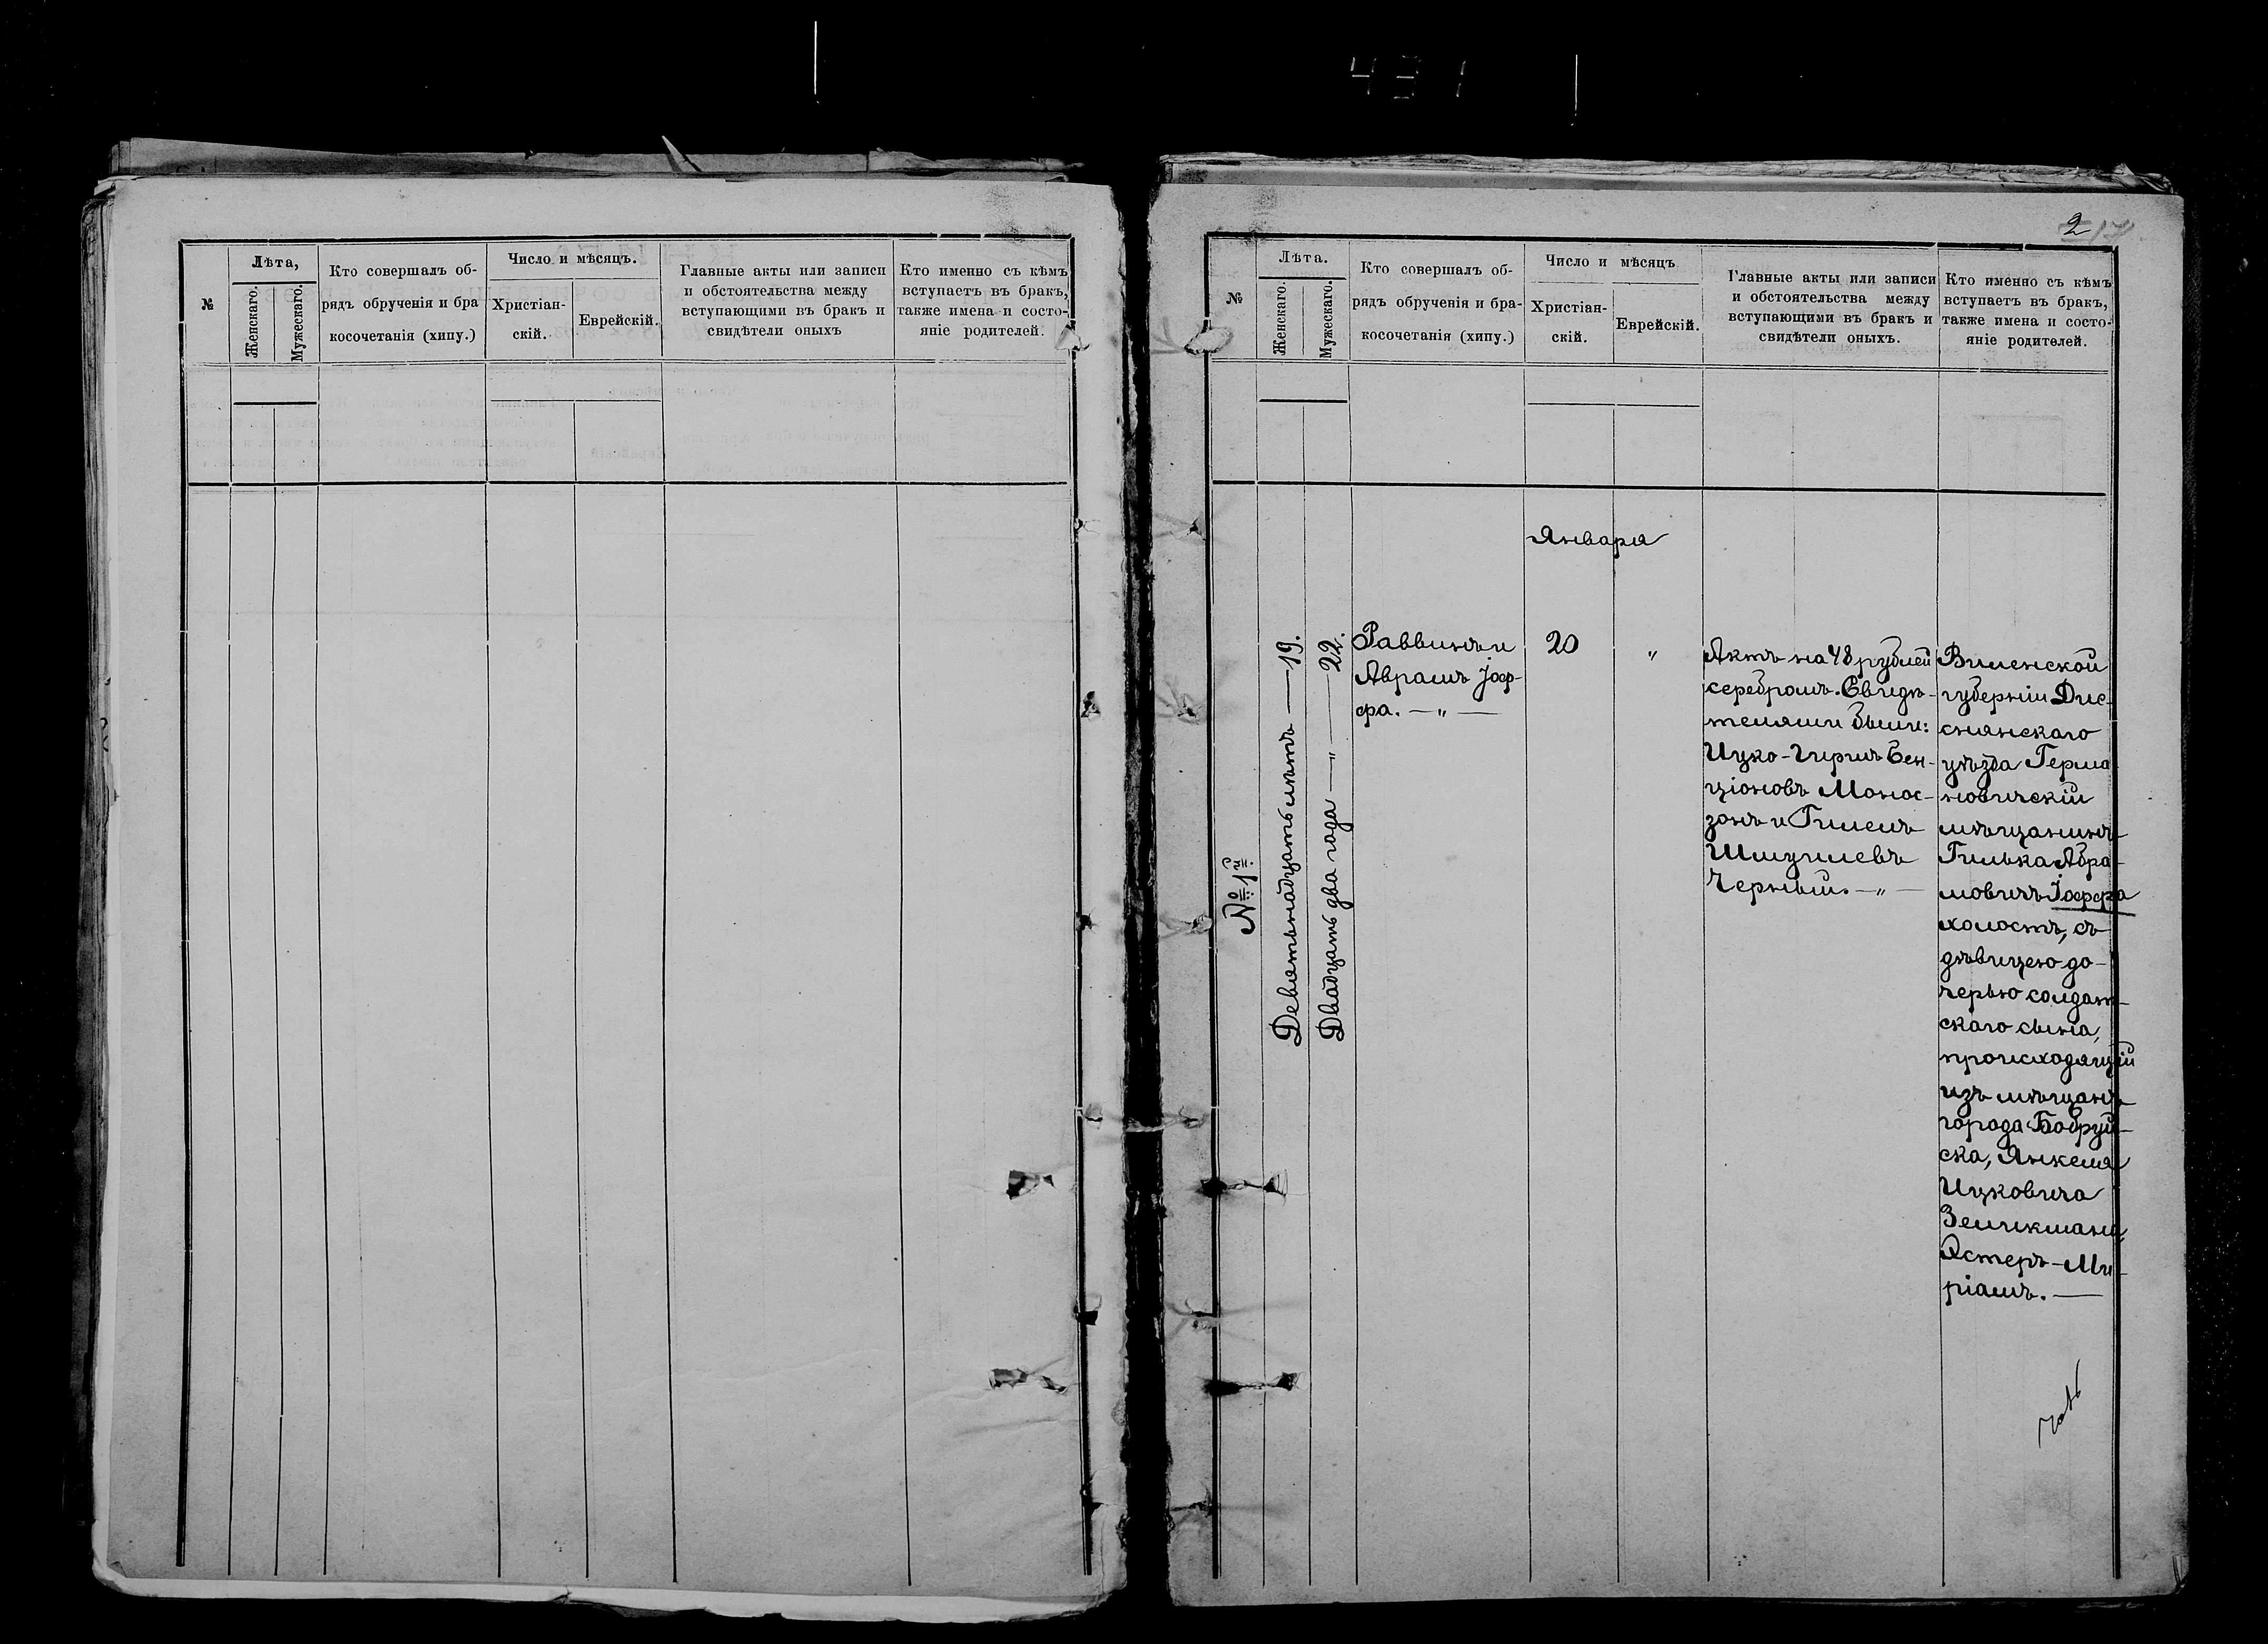 431
№
Лѣта,
Женскаго.
Мужескаго.
Кто совершалъ об-
рядъ обрученія и бра
косочетанія (хипу.)
Число и мѣсяцъ.
Христіан-
скій.
Еврейскій.
Главные акты или записи
и обстоятельства между
вступающими въ бракъ и
свидѣтели оныхъ
Кто именно съ кѣмъ
вступаетъ въ бракъ,
также имена и состо-
яніе родителей.
2
17
№
Лѣта.
Женскаго.
Мужескаго.
Кто совершалъ об-
рядъ обрученія и бра-
косочетанія (хипу.)
Число и мѣсяцъ
Христіан-
скій.
Еврейскій.
Главные акты или записи
и обстоятельства между
вступающими въ бракъ и
свидѣтели оныхъ.
Кто именно съ кѣмъ
вступаетъ въ бракъ,
также имена и состо-
яніе родителей.
Января
№ 1й.
Девятьнадцать лѣтъ — 19.
Двадцать два года — „ — 22.
Раввинъ и
Аврамъ Іоф-
фа. — „ —
20
„
Актъ на 48 рублей
серебромъ. Свидѣ-
телями были:
Ицко-Гиршъ Бен-
ціоновъ Монос-
зонъ и Гилелъ
Шмуилевъ
Черный. — „ —
Виленской
губерніи Дис-
снянскаго
уѣзда Герма
новичскій
мѣщанинъ
Гилька Абра-
мовичъ Іоффа
холостъ, съ
дѣвицею до-
черью солдат-
скаго сына,
происходящій
изъ мѣщанъ
города Бобруй-
ска, Янкеля
Ицковича
Зеликмана,
Эстеръ-Ми-
ріамъ. —